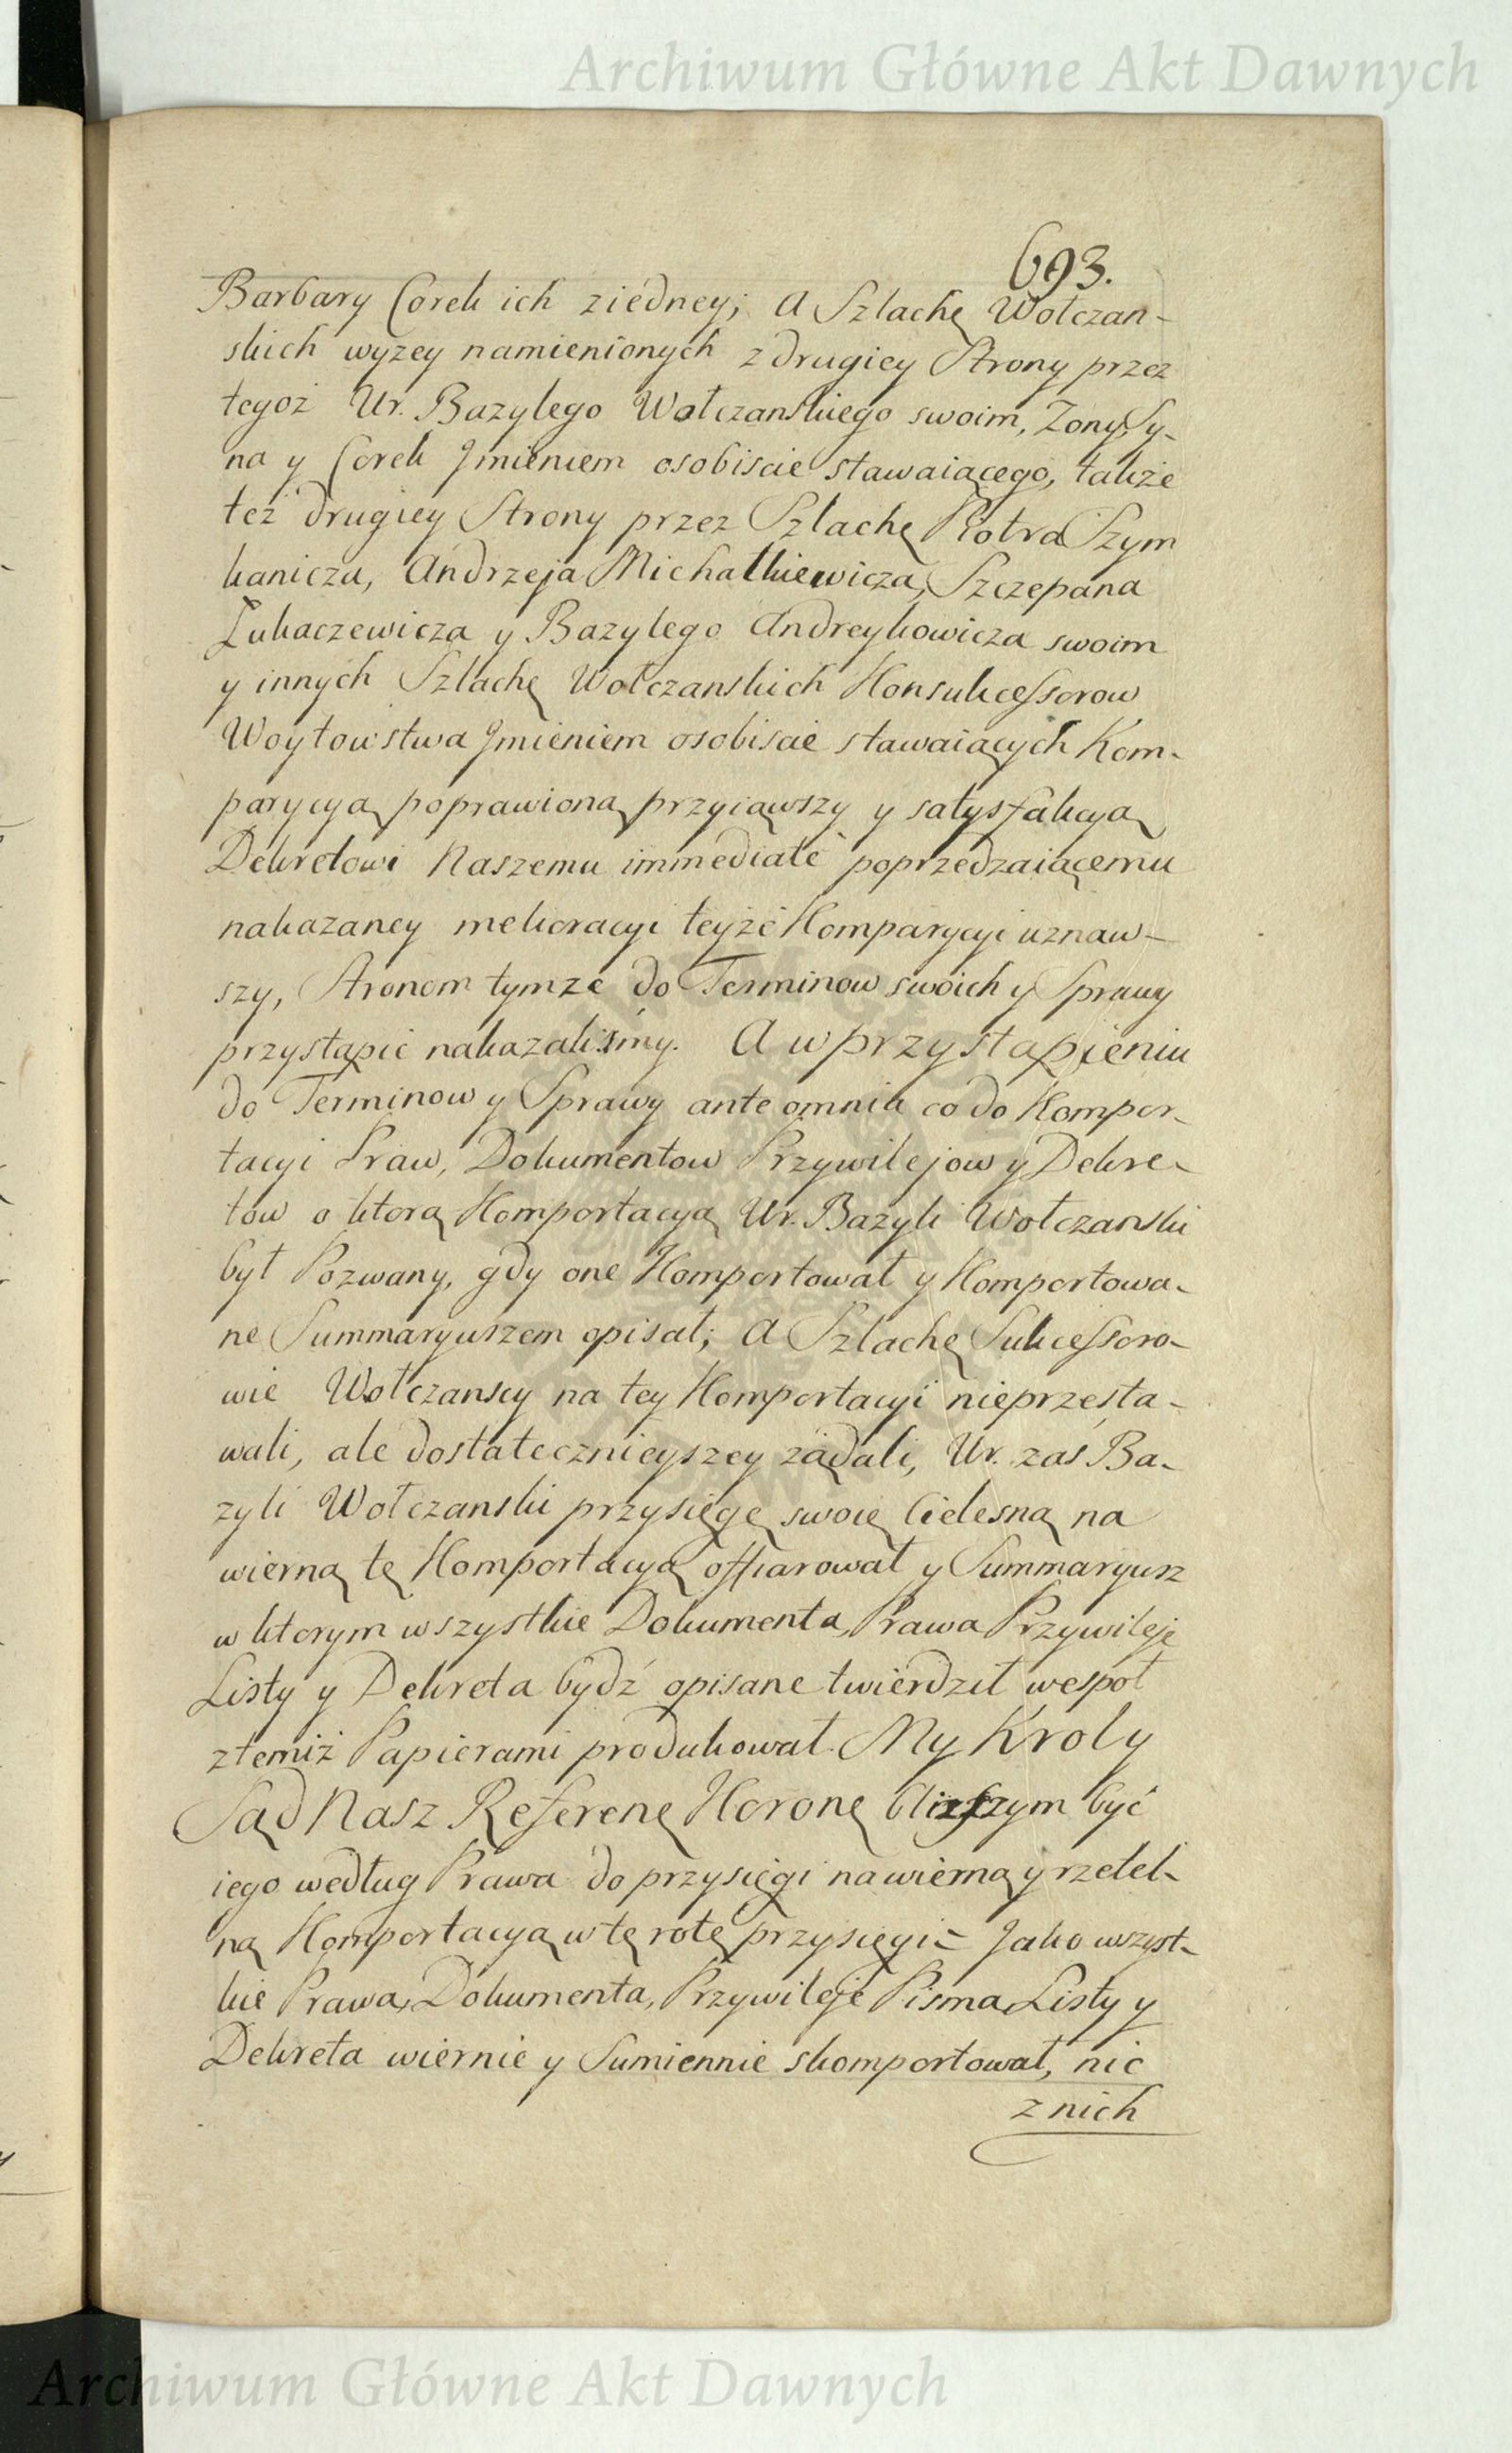 Archiwum Główne Akt Dawnych
693.
Barbary Corek ich ziedney; A Szlachę Wołczan-
skich wyzey namienionych z drugiey Strony przez
tegoż Ur. Bazylego Wołczanskiego swoim, Zony, Sy-
na y Corek Jmieniem osobiscie stawaiącego, także
też drugiey Strony przez Szlachę Piotra Szym
kanicza, Andrzeja Michałkiewicza, Szczepana
Łukaczewicza y Bazylego Andreykowicza swoim
y innych Szlachę Wołczanskich Konsukcessorow
Woytowstwa Jmieniem osobiscie stawaiących Kom-
parycyą poprawioną przyiąwszy y satysfakcyą
Dekretowi Naszemu immediate poprzedzaiącemu
nakazaney melioracyi teyże Komparycyi uznaw-
szy, Stronom tymze do Terminow swoich y Sprawy
przystąpic nakazalismy. A w przystąpieniu
do Terminow y Sprawy ante omnia co do Kompor-
tacyi Praw, Dokumentow Przywilejow y Dekre-
tow o ktorą Komportacyą Ur. Bazyli Wołczanski
był Pozwany, gdy one Komportował y Komportowa-
ne Summaryuszem opisał; A Szlachę Sukcessoro-
wie Wołczanscy na tey Komportacyi nieprzesta-
wali, ale dostatecznieyszey żądali, Ur. zaś Ba-
zyli Wołczanski przysięgę swoię Cielesną na
wierną tę Komportacyą offiarował y Summaryusz
w ktorym wszystkie Dokumenta, Prawa Przywileje
Listy y Dekreta bydź opisane twierdził wespoł
z temiż Papierami produkował. My Kroly
Sąd Nasz Referenę Koronę bliższym być
iego według Prawa do przysięgi na wierną y rzetel-
ną Komportacyą w tę rotę przysięgi = Jako wszyst-
kie Prawa, Dokumenta, Przywileje Pisma, Listy y
Dekreta wiernie y Sumiennie skomportował, nic
z nich
Archiwum Główne Akt Dawnych